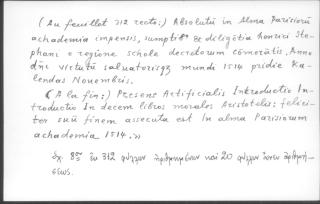 (Au feuillet 312 recto:) Absolutū in Alma Parisiorū
achademia impensis, sumptib9 & diligētia honrici Ste-
phani e regione schole decretorum cōmorātis. Anno
dñi virtutū saluatorisqz mundi 1514 pridie Ka-
lendas Nouembris.
(A la fin:) Presens Artificialis Introductio In-
troductio In decem libros morales Aristotelis: felici-
ter suū finem assecuta est In alma Parisiorum
achademia 1514.»
σχ. 8ον ἐκ 312 φύλλων ἠριθμημένων καὶ 20 φύλλων ἄνευ ἀριθμή-
σεως.